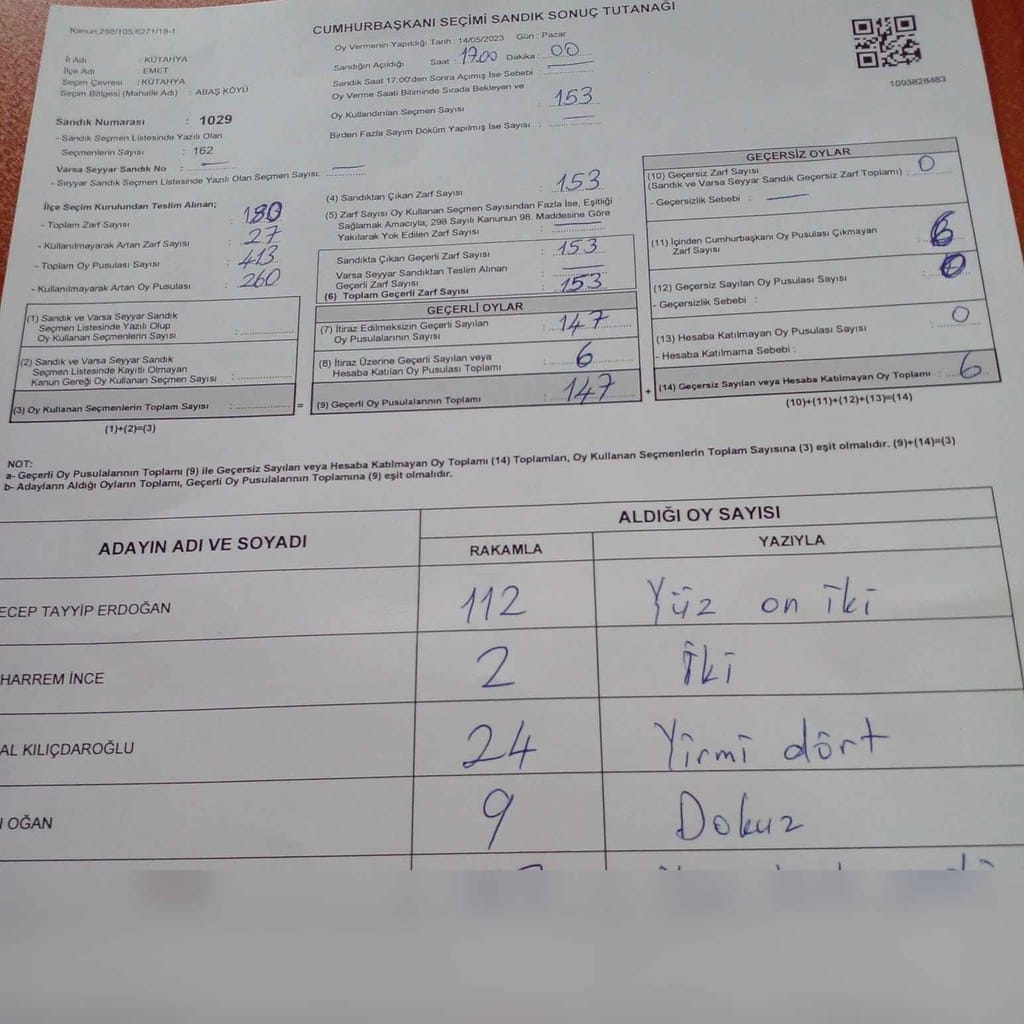 Kanun,298/105,6271/18-1
CUMHURBAŞKANI SEÇİMİ SANDIK SONUÇ TUTANAĞI
İl Adı : KÜTAHYA
İlçe Adı : EMET
Seçim Çevresi : KÜTAHYA
Seçim Bölgesi (Mahalle Adı) : ABAŞ KÖYÜ
Sandık Numarası : 1029
- Sandık Seçmen Listesinde Yazılı Olan
Seçmenlerin Sayısı : 162
Varsa Seyyar Sandık No :
- Seyyar Sandık Seçmen Listesinde Yazılı Olan Seçmen Sayısı:
Oy Vermenin Yapıldığı Tarih : 14/05/2023 Gün : Pazar
Sandığın Açıldığı Saat : 17.00 Dakika : 00
Sandık Saat 17:00'den Sonra Açımış İse Sebebi :
Oy Verme Saati Bitiminde Sırada Bekleyen ve
Oy Kullandırılan Seçmen Sayısı : 153
Birden Fazla Sayım Döküm Yapılmış İse Sayısı :
1093828483
İlçe Seçim Kurulundan Teslim Alınan;
- Toplam Zarf Sayısı : 180
- Kullanılmayarak Artan Zarf Sayısı : 27
- Toplam Oy Pusulası Sayısı : 413
- Kullanılmayarak Artan Oy Pusulası : 260
(1) Sandık ve Varsa Seyyar Sandık
Seçmen Listesinde Yazılı Olup
Oy Kullanan Seçmenlerin Sayısı :
(2) Sandık ve Varsa Seyyar Sandık
Seçmen Listesinde Kayıtlı Olmayan
Kanun Gereği Oy Kullanan Seçmen Sayısı :
(3) Oy Kullanan Seçmenlerin Toplam Sayısı : =
(1)+(2)=(3)
(4) Sandıktan Çıkan Zarf Sayısı : 153
(5) Zarf Sayısı Oy Kullanan Seçmen Sayısından Fazla İse, Eşitliği
Sağlamak Amacıyla, 298 Sayılı Kanunun 98. Maddesine Göre
Yakılarak Yok Edilen Zarf Sayısı :
Sandıkta Çıkan Geçerli Zarf Sayısı : 153
Varsa Seyyar Sandıktan Teslim Alınan
Geçerli Zarf Sayısı :
(6) Toplam Geçerli Zarf Sayısı : 153
GEÇERLİ OYLAR
(7) İtiraz Edilmeksizin Geçerli Sayılan
Oy Pusulalarının Sayısı : 147
(8) İtiraz Üzerine Geçerli Sayılan veya
Hesaba Katılan Oy Pusulası Toplamı : 6
(9) Geçerli Oy Pusulalarının Toplamı : 147 +
GEÇERSİZ OYLAR
(10) Geçersiz Zarf Sayısı
(Sandık ve Varsa Seyyar Sandık Geçersiz Zarf Toplamı) : 0
- Geçersizlik Sebebi :
(11) İçinden Cumhurbaşkanı Oy Pusulası Çıkmayan
Zarf Sayısı : 6
(12) Geçersiz Sayılan Oy Pusulası Sayısı : 0
- Geçersizlik Sebebi :
(13) Hesaba Katılmayan Oy Pusulası Sayısı : 0
- Hesaba Katılmama Sebebi :
(14) Geçersiz Sayılan veya Hesaba Katılmayan Oy Toplamı : 6
(10)+(11)+(12)+(13)=(14)
NOT:
a- Geçerli Oy Pusulalarının Toplamı (9) ile Geçersiz Sayılan veya Hesaba Katılmayan Oy Toplamı (14) Toplamları, Oy Kullanan Seçmenlerin Toplam Sayısına (3) eşit olmalıdır. (9)+(14)=(3)
b- Adayların Aldığı Oyların Toplamı, Geçerli Oy Pusulalarının Toplamına (9) eşit olmalıdır.
ADAYIN ADI VE SOYADI
ALDIĞI OY SAYISI
RAKAMLA YAZIYLA
ECEP TAYYİP ERDOĞAN 112 Yüz on iki
HARREM İNCE 2 iki
AL KILIÇDAROĞLU 24 Yirmi dört
OĞAN 9 Dokuz